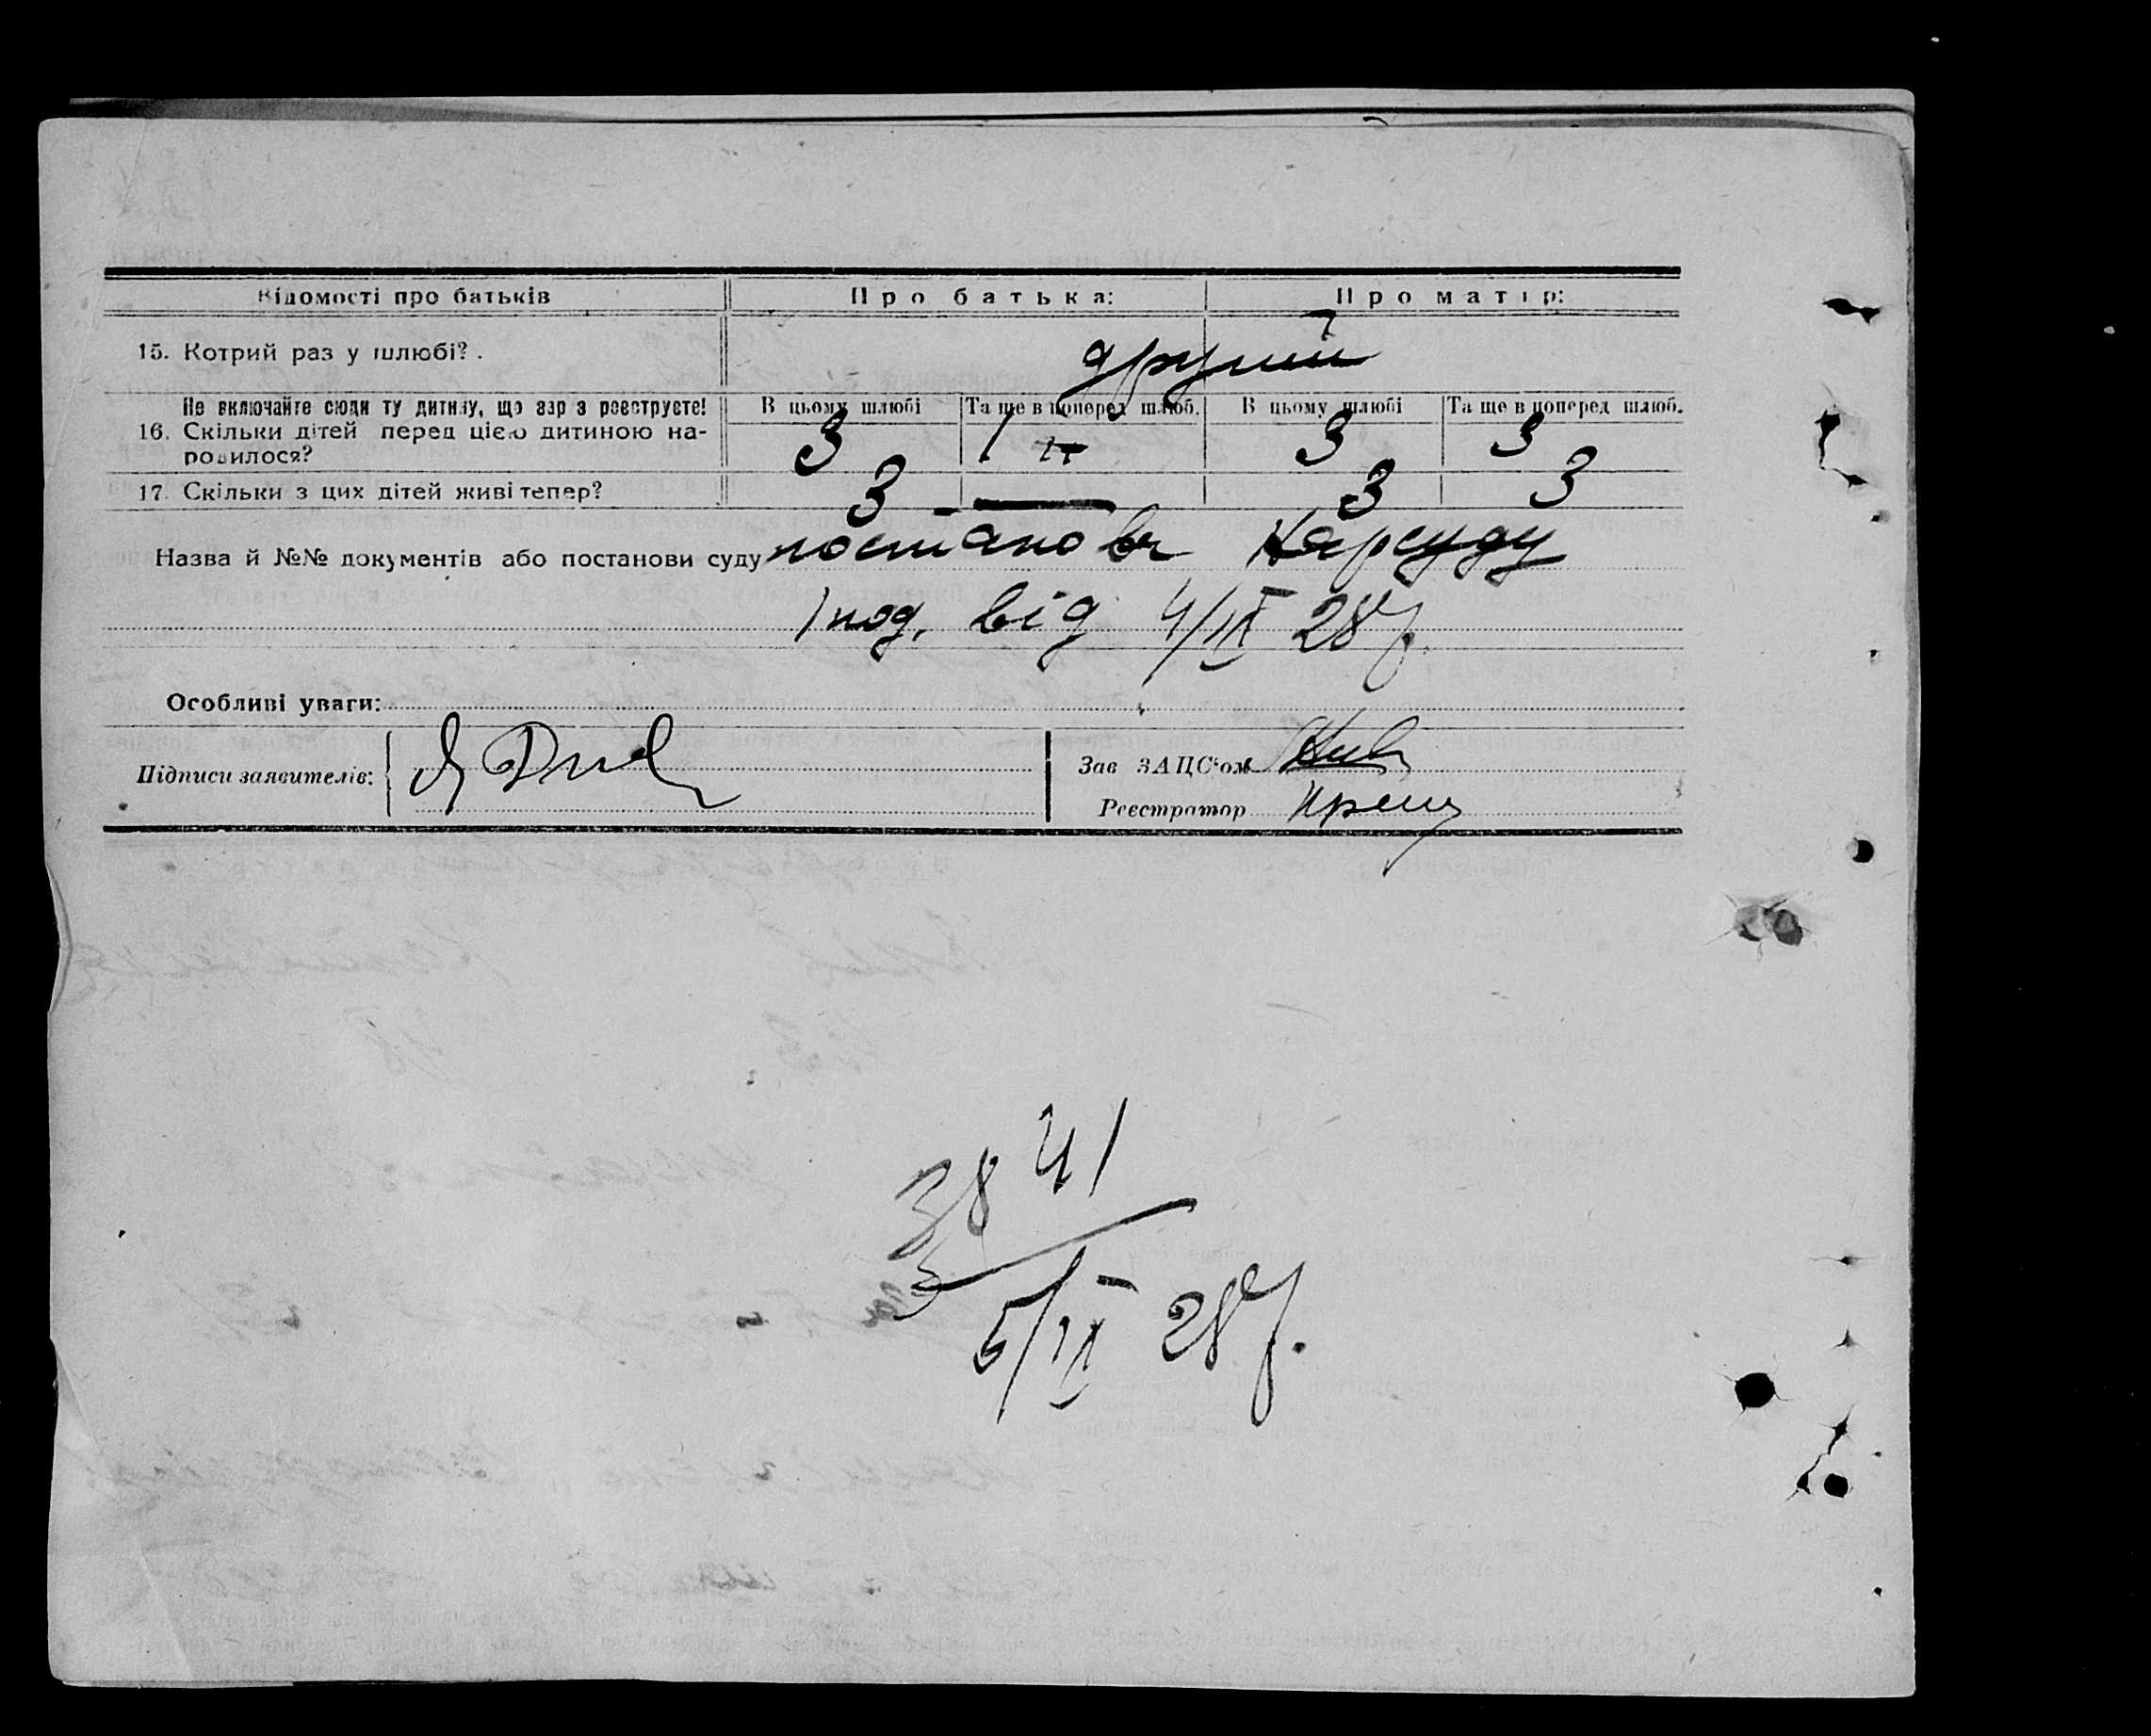 Відомості про батьків Про батька: Про матір:
15. Котрий раз у шлюбі? . другий
Не включайте сюди ту дитину, що зар з реєструєте! В цьому шлюбі Та ще в поперед шлюб. В цьому шлюбі Та ще в поперед шлюб.
16. Скільки дітей перед цією дитиною на-
родилося? 3 1 3 3
17. Скільки з цих дітей живі тепер? 3 — 3 3
Назва й №№ документів або постанови суду постанова Нарсуду
1 под. від 4/IX 28 р.
Особливі уваги:
Підписи заявителів:
Зав ЗАЦС'ом
Реєстратор
38 41
5/IX 28 р.